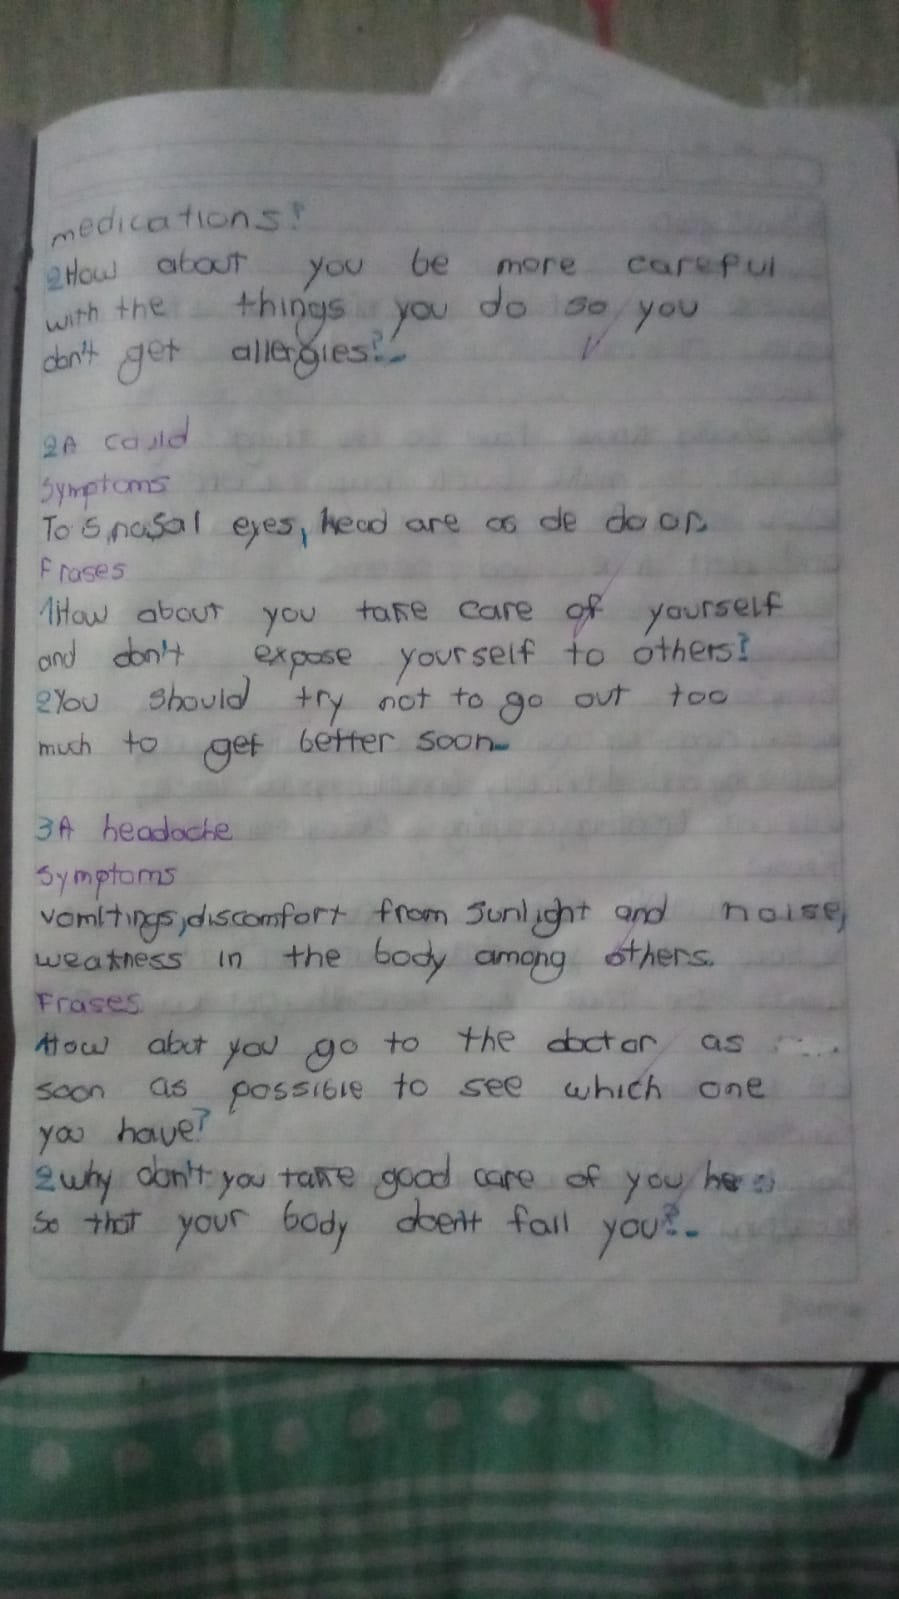 medications?
2How about you be more careful
with the things you do so you
don't get allergies?
2A could
Symptoms
To s, nasal eyes, head are as de do or.
Frases
1How about you take care of yourself
and don't expose yourself to others?
2You should try not to go out too
much to get better soon
3A headache
Symptoms
vomitings, discomfort from sunlight and noise,
weakness in the body among others.
Frases
1How abut you go to the doctor as
soon as possible to see which one
you have?
2why don't you take good care of you
so that your body doent fall you?